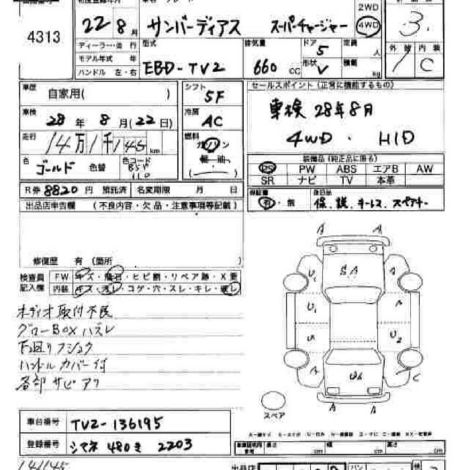 4313
22年 8月
サンバーディアス スーパーチャージャー
2WD
4WD
3
ディーラー・並行
モデル年式
ハンドル 左・右
型式
EBD-TV2
排気量
660 cc
ドア
5
形状
V
定員
人
積載
kg
外 内
1 C
車歴
自家用( )
シフト
5F
車検
28年 8月(22日)
冷房
AC
走行
14万1千145km
燃料
ガソリン
軽油
色
ゴールド
色替
カラーコード
R券 8820円 預託済
名変期限 月 日
セールスポイント(正常に機能するもの)
車検 28年8月
4WD・HID
装備品(純正品に限る)
PS PW ABS エアB AW
SR ナビ TV 本革
保証書
有・無
後日品
保、説、キーレス、スペアキー
出品店申告欄 (不良内容・欠品・注意事項等記載)
修復歴 有(箇所 )
検査員記入欄
FW キズ・飛石・ヒビ割・リペア跡・X要
内装 キズ・汚レ・コゲ・穴・スレ・キレ・破レ
オーディオ取付不良
グローBOXハズレ
下廻リフショク
ハンドルカバー付
各部サビアリ
A
U1 SA A
U1 U2
A
スペア
車台番号
TV2-136195
登録番号
シマネ 480 き 2203
長さ cm
幅 cm
高さ cm
141145
出品店